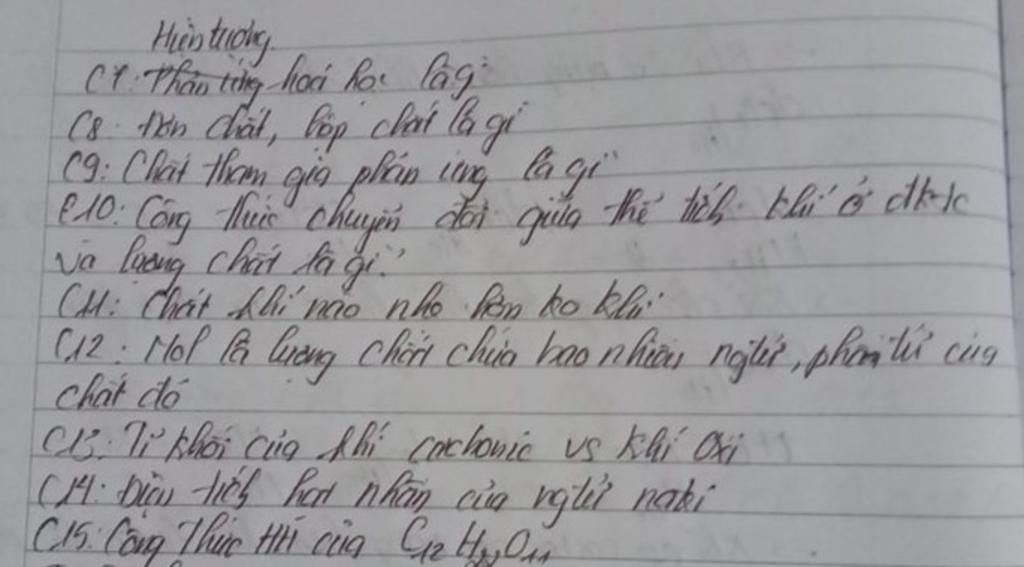 Hiện tượng
C7: Phản ứng hoá học là gì
C8: Đơn chất, hợp chất là gì
C9: Chất tham gia phản ứng là gì
C10: Công thức chuyển đổi giữa thể tích khí ở đktc
và lượng chất là gì?
C11: Chất khí nào nhẹ hơn ko khí
C12: Mol là lượng chất chứa bao nhiêu ngtử, phân tử của
chất đó
C13: Tỉ khối của khí cacbonic vs khí oxi
C14: Điện tích hạt nhân của ngtử natri
C15: Công thức HH của C12H22O11